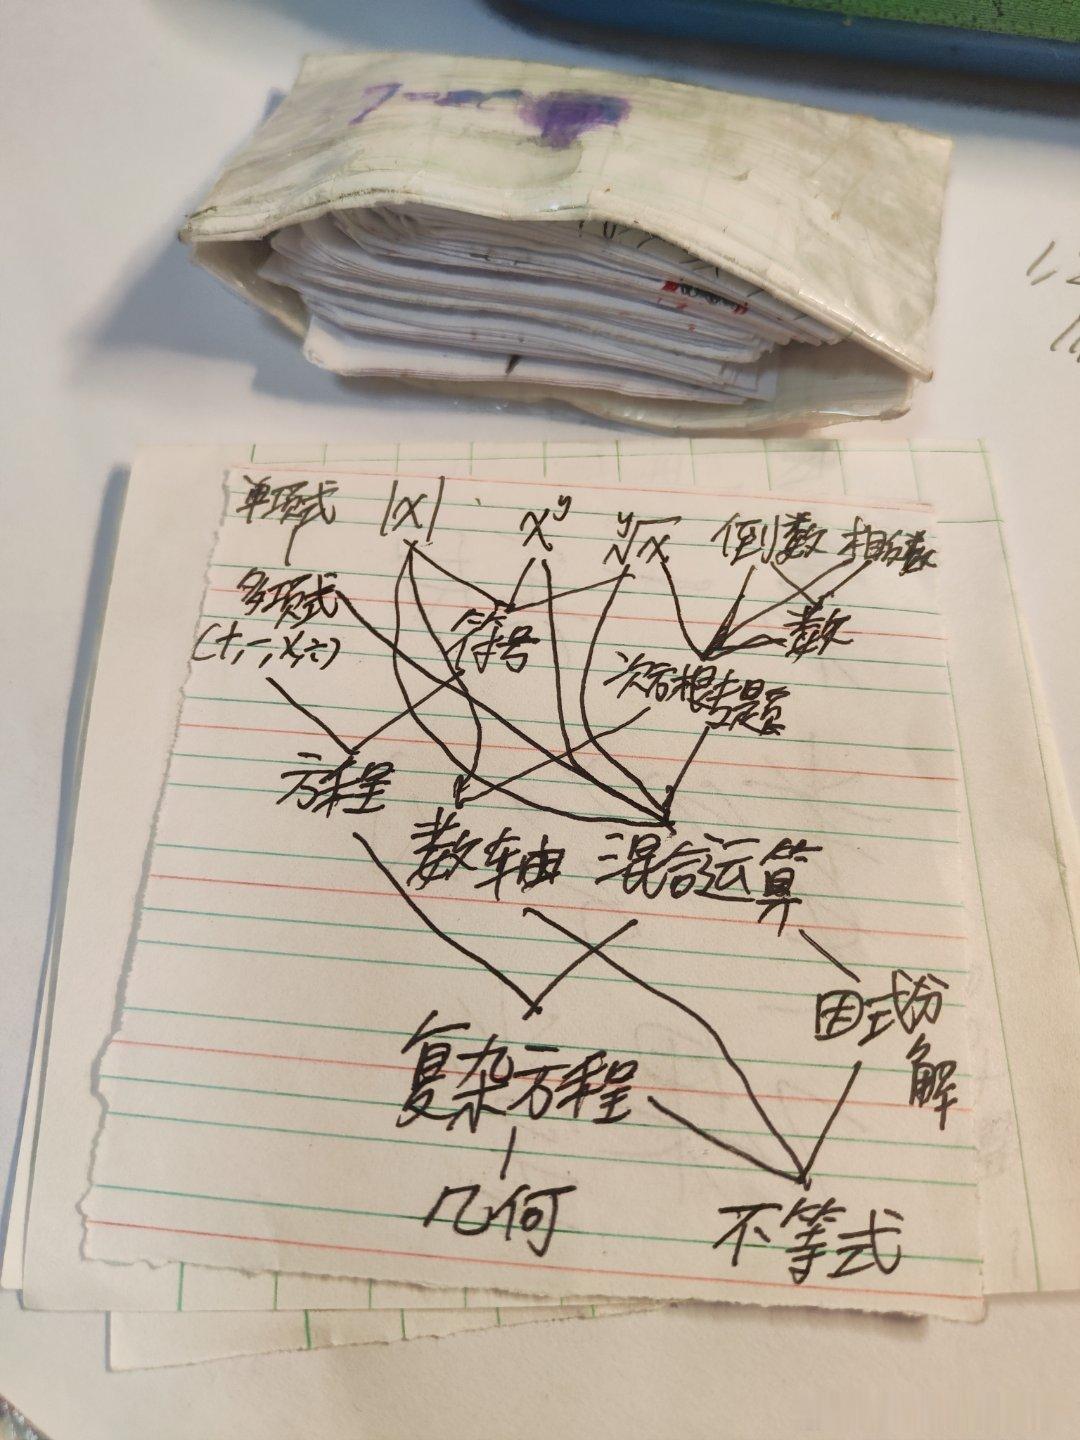 单项式 |x| x^y ʸ√x 倒数 相反数
多项式 符号 数
(+,-,×,÷)
方程 数轴 混合运算
因式分
解
复杂方程
几何 不等式